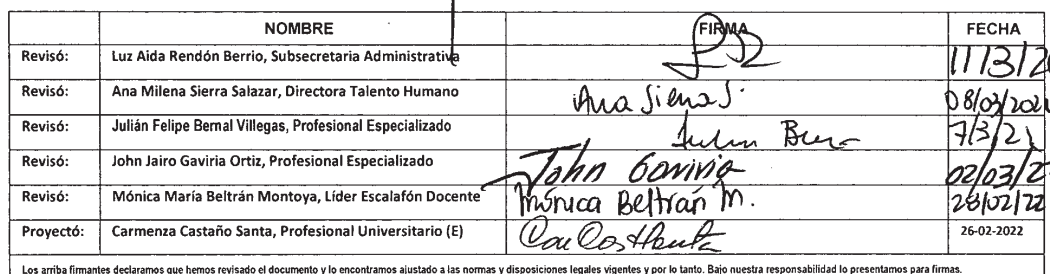 NOMBRE FIRMA FECHA
Revisó: Luz Aida Rendón Berrio, Subsecretaria Administrativa 11/3/2
Revisó: Ana Milena Sierra Salazar, Directora Talento Humano Ana Sierra S. 08/03/202
Revisó: Julián Felipe Bernal Villegas, Profesional Especializado 7/3/2
Revisó: John Jairo Gaviria Ortiz, Profesional Especializado John Gaviria 02/03/2
Revisó: Mónica María Beltrán Montoya, Líder Escalafón Docente Mónica Beltrán M. 28/02/22
Proyectó: Carmenza Castaño Santa, Profesional Universitario (E) 26-02-2022
Los arriba firmantes declaramos que hemos revisado el documento y lo encontramos ajustado a las normas y disposiciones legales vigentes y por lo tanto. Bajo nuestra responsabilidad lo presentamos para firmas.